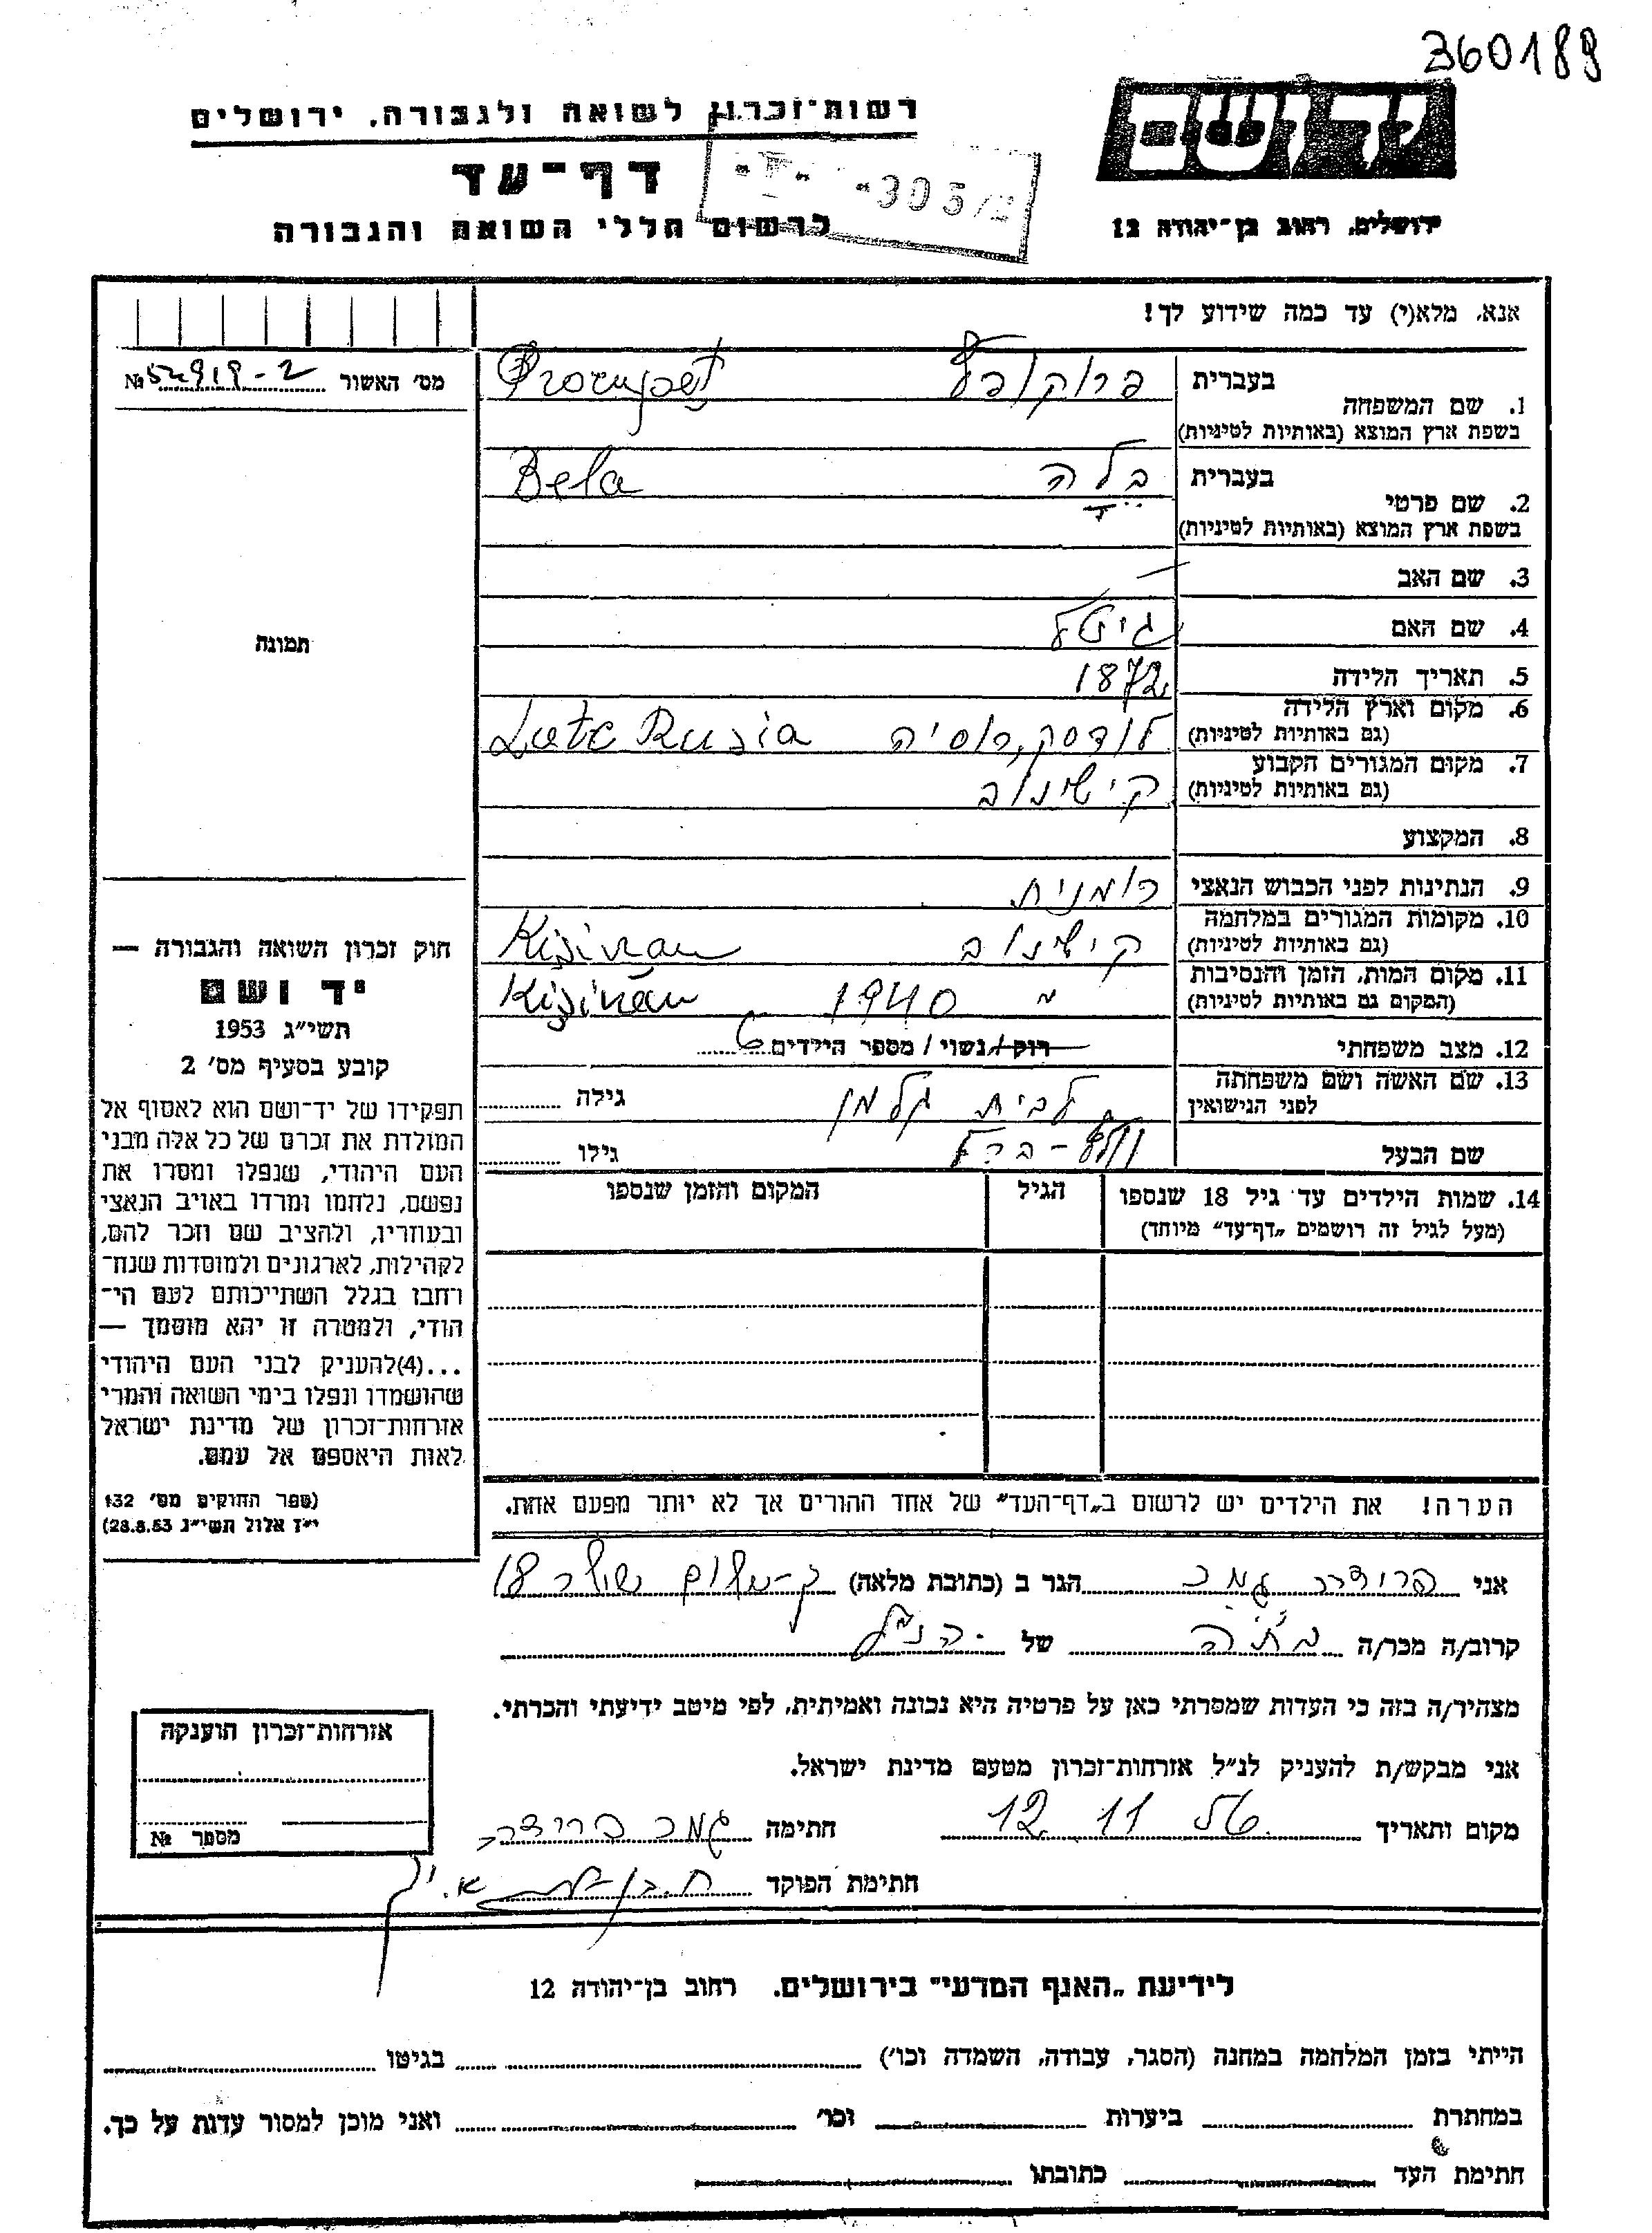 360189
יד ושם
רשות־זכרון לשואה ולגבורה, ירושלים
דף־עד
ירושלים, רחוב בן־יהודה 12
לרשום חללי השואה והגבורה
אנא, מלא(י) עד כמה שידוע לך!
מס׳ האשור № 52919-2
בעברית
1. שם המשפחה
בשפת ארץ המוצא (באותיות לטיניות)
Procupet
בעברית בלה
2. שם פרטי
בשפת ארץ המוצא (באותיות לטיניות)
Bela
3. שם האב –
4. שם האם גיטל
5. תאריך הלידה 1872
6. מקום וארץ הלידה
(גם באותיות לטיניות) רוסיה Rusia
7. מקום המגורים הקבוע
(גם באותיות לטיניות) קישינוב
8. המקצוע
9. הנתינות לפני הכבוש הנאצי רומנית
10. מקומות המגורים במלחמה
(גם באותיות לטיניות) קישינוב Kişinău
11. מקום המות, הזמן והנסיבות
(המקום גם באותיות לטיניות) 1940 Kişinău
12. מצב משפחתי רווק / נשוי / מספר הילדים 6
13. שם האשה ושם משפחתה
לפני הנישואין לבית גלמן גילה
שם הבעל גילו
14. שמות הילדים עד גיל 18 שנספו הגיל המקום והזמן שנספו
(מעל לגיל זה רושמים „דף־עד" מיוחד)
הערה! את הילדים יש לרשום ב„דף־העד" של אחד ההורים אך לא יותר מפעם אחת.
תמונה
חוק זכרון השואה והגבורה —
יד ושם
תשי״ג 1953
קובע בסעיף מס׳ 2
תפקידו של יד־ושם הוא לאסוף אל
המולדת את זכרם של כל אלה מבני
העם היהודי, שנפלו ומסרו את
נפשם, נלחמו ומרדו באויב הנאצי
ובעוזריו, ולהציב שם וזכר להם,
לקהילות, לארגונים ולמוסדות שנח־
רחבו בגלל השתייכותם לעם הי־
הודי, ולמטרה זו יהא מוסמך —
...(4)להעניק לבני העם היהודי
שהושמדו ונפלו בימי השואה והמרי
אזרחות־זכרון של מדינת ישראל
לאות היאספם אל עמם.
(ספר החוקים מס׳ 132
י״ז אלול תשי״ג 28.8.53)
אני הגר ב (כתובת מלאה) 18
קרוב/ה מכר/ה של הנ״ל
מצהיר/ה בזה כי העדות שמסרתי כאן על פרטיה היא נכונה ואמיתית, לפי מיטב ידיעתי והכרתי.
אני מבקש/ת להעניק לנ״ל אזרחות־זכרון מטעם מדינת ישראל.
מקום ותאריך 12 11 56 חתימה
חתימת הפוקד
אזרחות־זכרון הוענקה
מספר №
לידיעת „האגף המדעי" בירושלים. רחוב בן־יהודה 12
הייתי בזמן המלחמה במחנה (הסגר, עבודה, השמדה וכו׳) בגיטו
במחתרת ביערות וכו׳ ואני מוכן למסור עדות על כך.
חתימת העד כתובתו